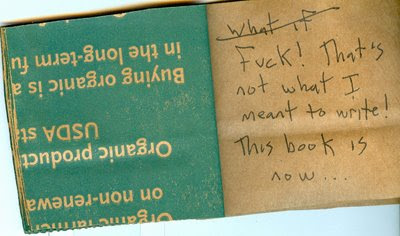 Organic farme
on non-renewa
Organic product
USDA sta
Buying organic is a
in the long-term fu
What if
Fuck! That's
not what I
meant to write!
This book is
now...